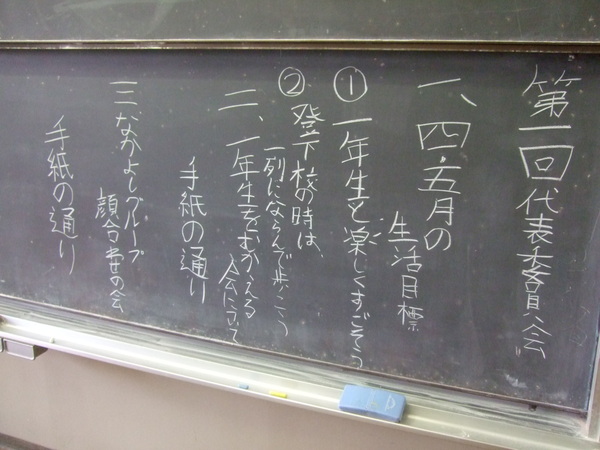 第一回代表委員会
一、四・五月の
生活目標
①一年生と楽しくすごそう
②登下校の時は、
一列にならんで歩こう
二、一年生をむかえる
会について
手紙の通り
三、なかよしグループ
顔合わせの会
手紙の通り